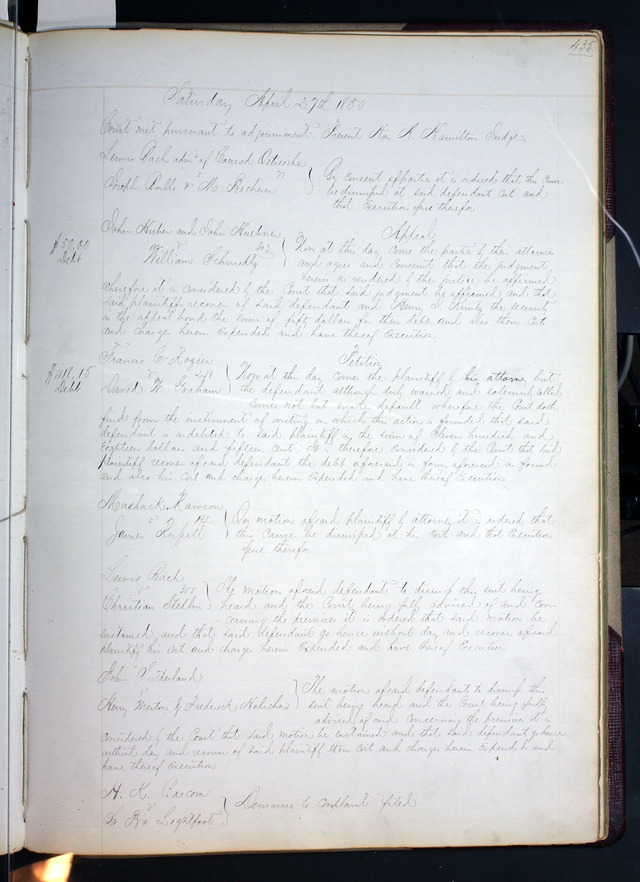 435
Saturday April 27th 1850
Court met pursuant to adjournment Present A. Hamilton Judge.
Lewis Bach admr of Conrad
vs
Joseph &
By consent of parties it is ordered that this cause
be dismissed at said defendant cost and
that Execution issue therefor
John Huber and John
vs
William
$50.00
Debt
Appeal
Now at this day come the parties by their attornies
and agree and consent that the judgment
herein as rendered by the justice be affirmed
wherefore it is considered by the Court that said judgment be affirmed and that
said plaintiff recover of said defendant and Henry the security
in the appeal bond the sum of fifty dollars for their debt and also their cost
and charges herein Expended and have thereof Execution
Francis C
vs
David W. Graham
$1118.15
Debt
Petition
Now at this day comes the plaintiff by his attorney but
the defendant although duly warned and solemnly called
comes not but makes default wherefore the Court doth
find from the instrument of writing on which this action is founded that said
defendant is indebted to said plaintiff in the sum of Eleven hundred and
Eighteen dollars and fifteen cents, It is therefore considered by the Court that said
plaintiff recover of said defendant the debt aforesaid in form aforesaid as found
and also his cost and charges herein Expended and have thereof Execution
Mashack Rawson
vs
James
On motion of said plaintiff by attorney it is ordered that
this cause be dismissed at his costs and that Execution
issue therefor
Lewis Bach
vs 355
Christian
The motion of said defendant to dismiss this suit being
heard and the Court being fully advised of and con-
cerning the premises it is ordered that said motion be
sustained and that said defendant go hence without day and recover of said
plaintiff his cost and charges herein Expended and have thereof Execution
John Sutherland
vs
Henry & Frederick
The motion of said defendants to dismiss this
suit being heard and the Court being fully
advised of and concerning the premises it is
considered by the Court that said motion be sustained and that said defendants go hence
without day and recover of said plaintiff their cost and charges herein Expended and
have thereof Execution
A. K. Bascom
vs
Lightfoot
Demurrer to complaint filed